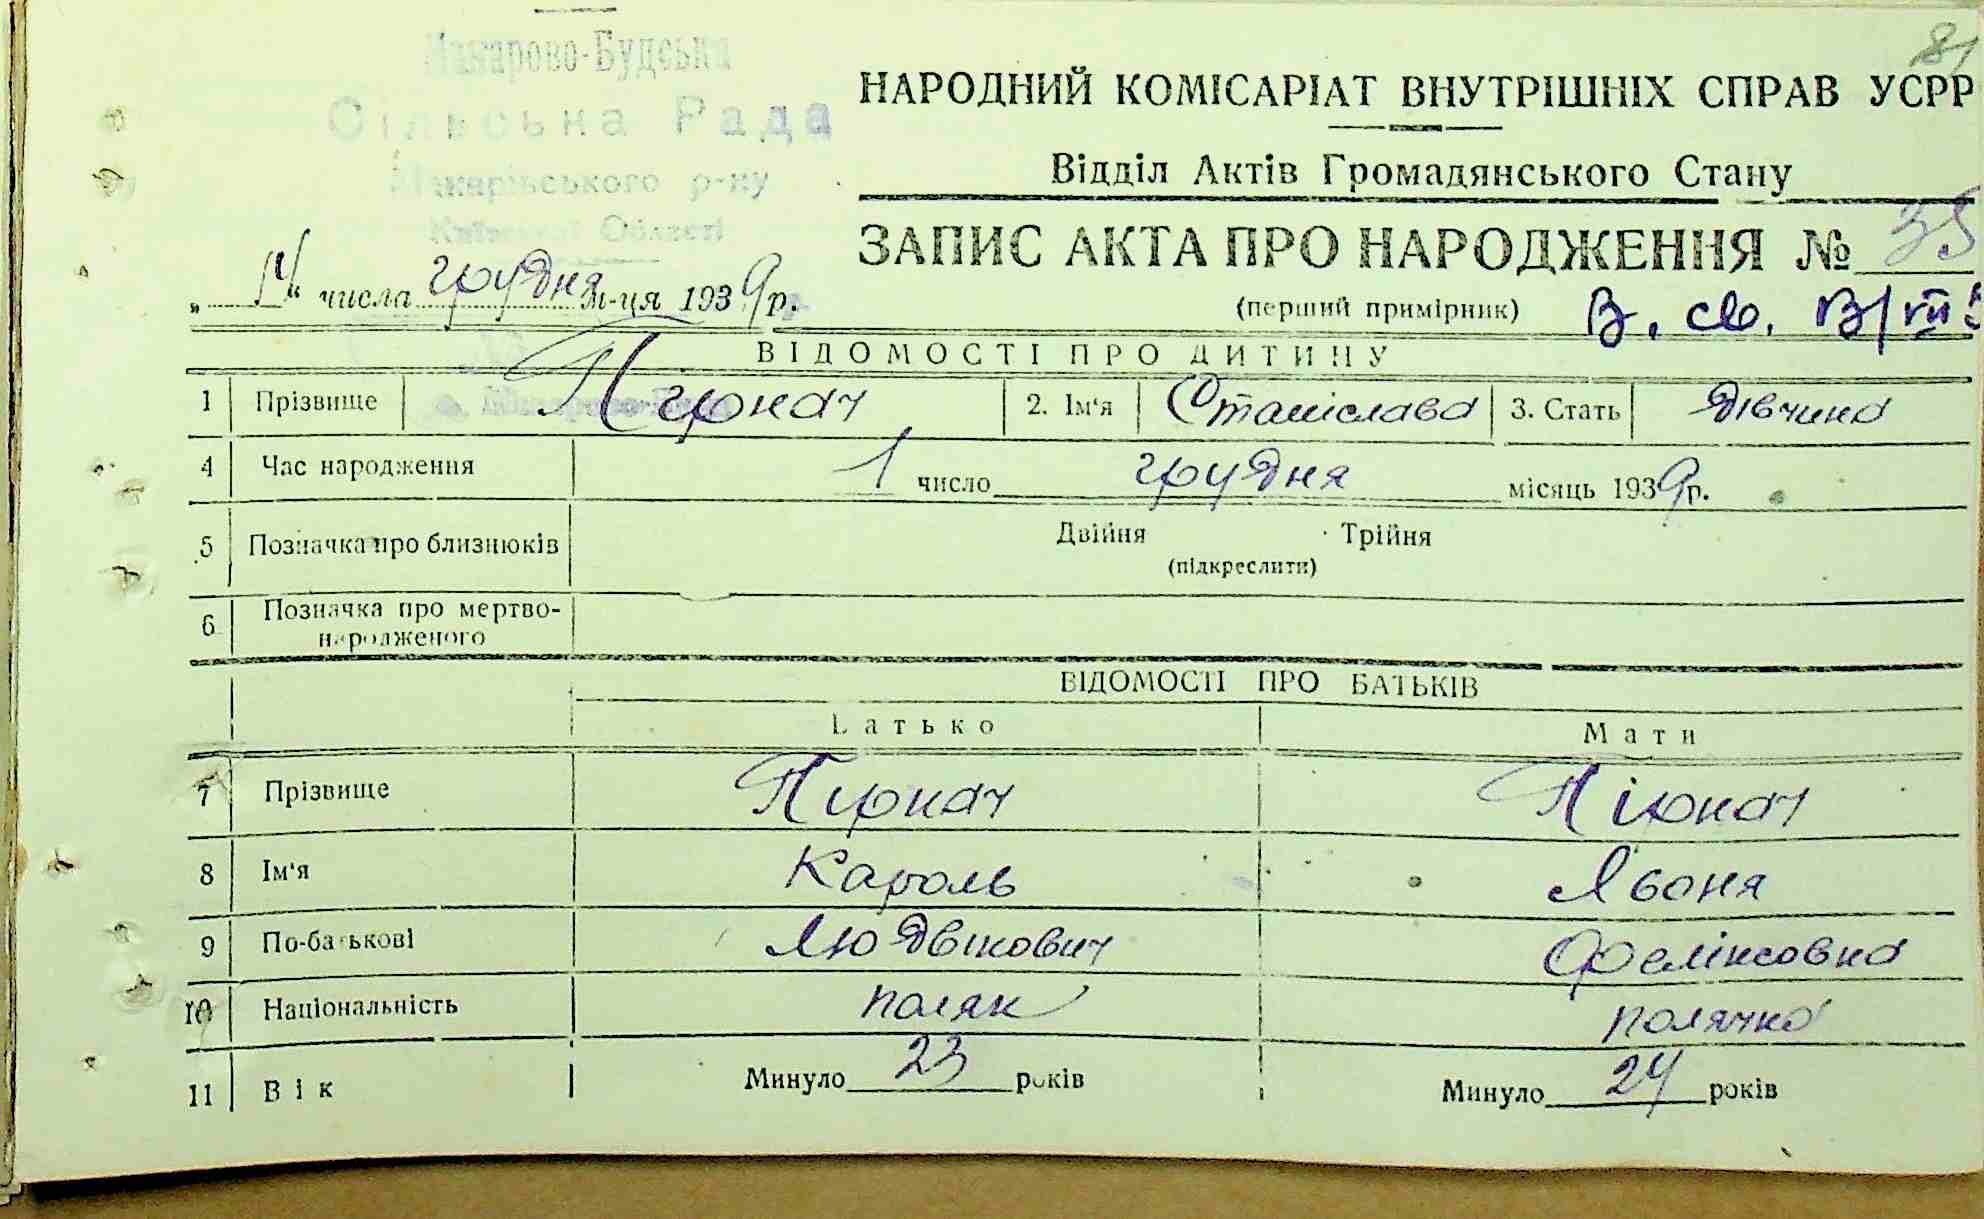 81
Макарово-Будська
Сільська Рада
Макарівського р-ну
Київської Області
НАРОДНИЙ КОМІСАРІАТ ВНУТРІШНІХ СПРАВ УСРР
Відділ Актів Громадянського Стану
ЗАПИС АКТА ПРО НАРОДЖЕННЯ № 35
„14“ числа грудня м-ця 1939 р.
(перший примірник)
В. св.
ВІДОМОСТІ ПРО ДИТИНУ
1 Прізвище Пірнач 2. Ім'я Станіслава 3. Стать дівчина
4 Час народження 1 число грудня місяць 1939 р.
5 Позначка про близнюків Двійня Трійня
(підкреслити)
6 Позначка про мертво-
народженого
ВІДОМОСТІ ПРО БАТЬКІВ
Батько Мати
7 Прізвище Пірнач Пірнач
8 Ім'я Кароль Явоня
9 По-батькові Людвікович Фелінсовна
10 Національність поляк полячка
11 Вік Минуло 23 років Минуло 24 років